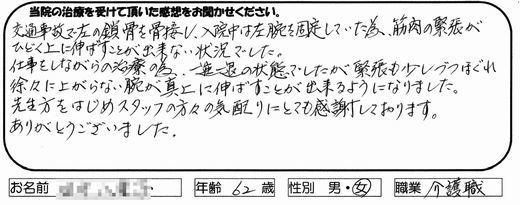 当院の治療を受けて頂いた感想をお聞かせください。
交通事故で左の鎖骨を骨接し、入院中は左腕を固定していた為、筋肉の緊張が
ひどく上に伸ばすことが出来ない状況でした。
仕事をしながらの治療の為、一進一退の状態でしたが緊張も少しづつほぐれ
徐々に上がらない腕が真上に伸ばすことが出来るようになりました。
先生方をはじめスタッフの方々の気配りにとても感謝しております。
ありがとうございました。
お名前 年齢 62 歳 性別 男・女 職業 介護職